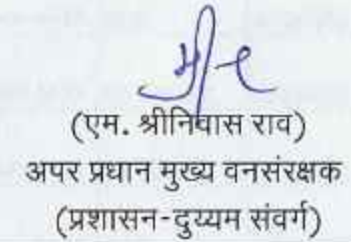 (एम. श्रीनिवास राव)
अपर प्रधान मुख्य वनसंरक्षक
(प्रशासन-दुय्यम संवर्ग)